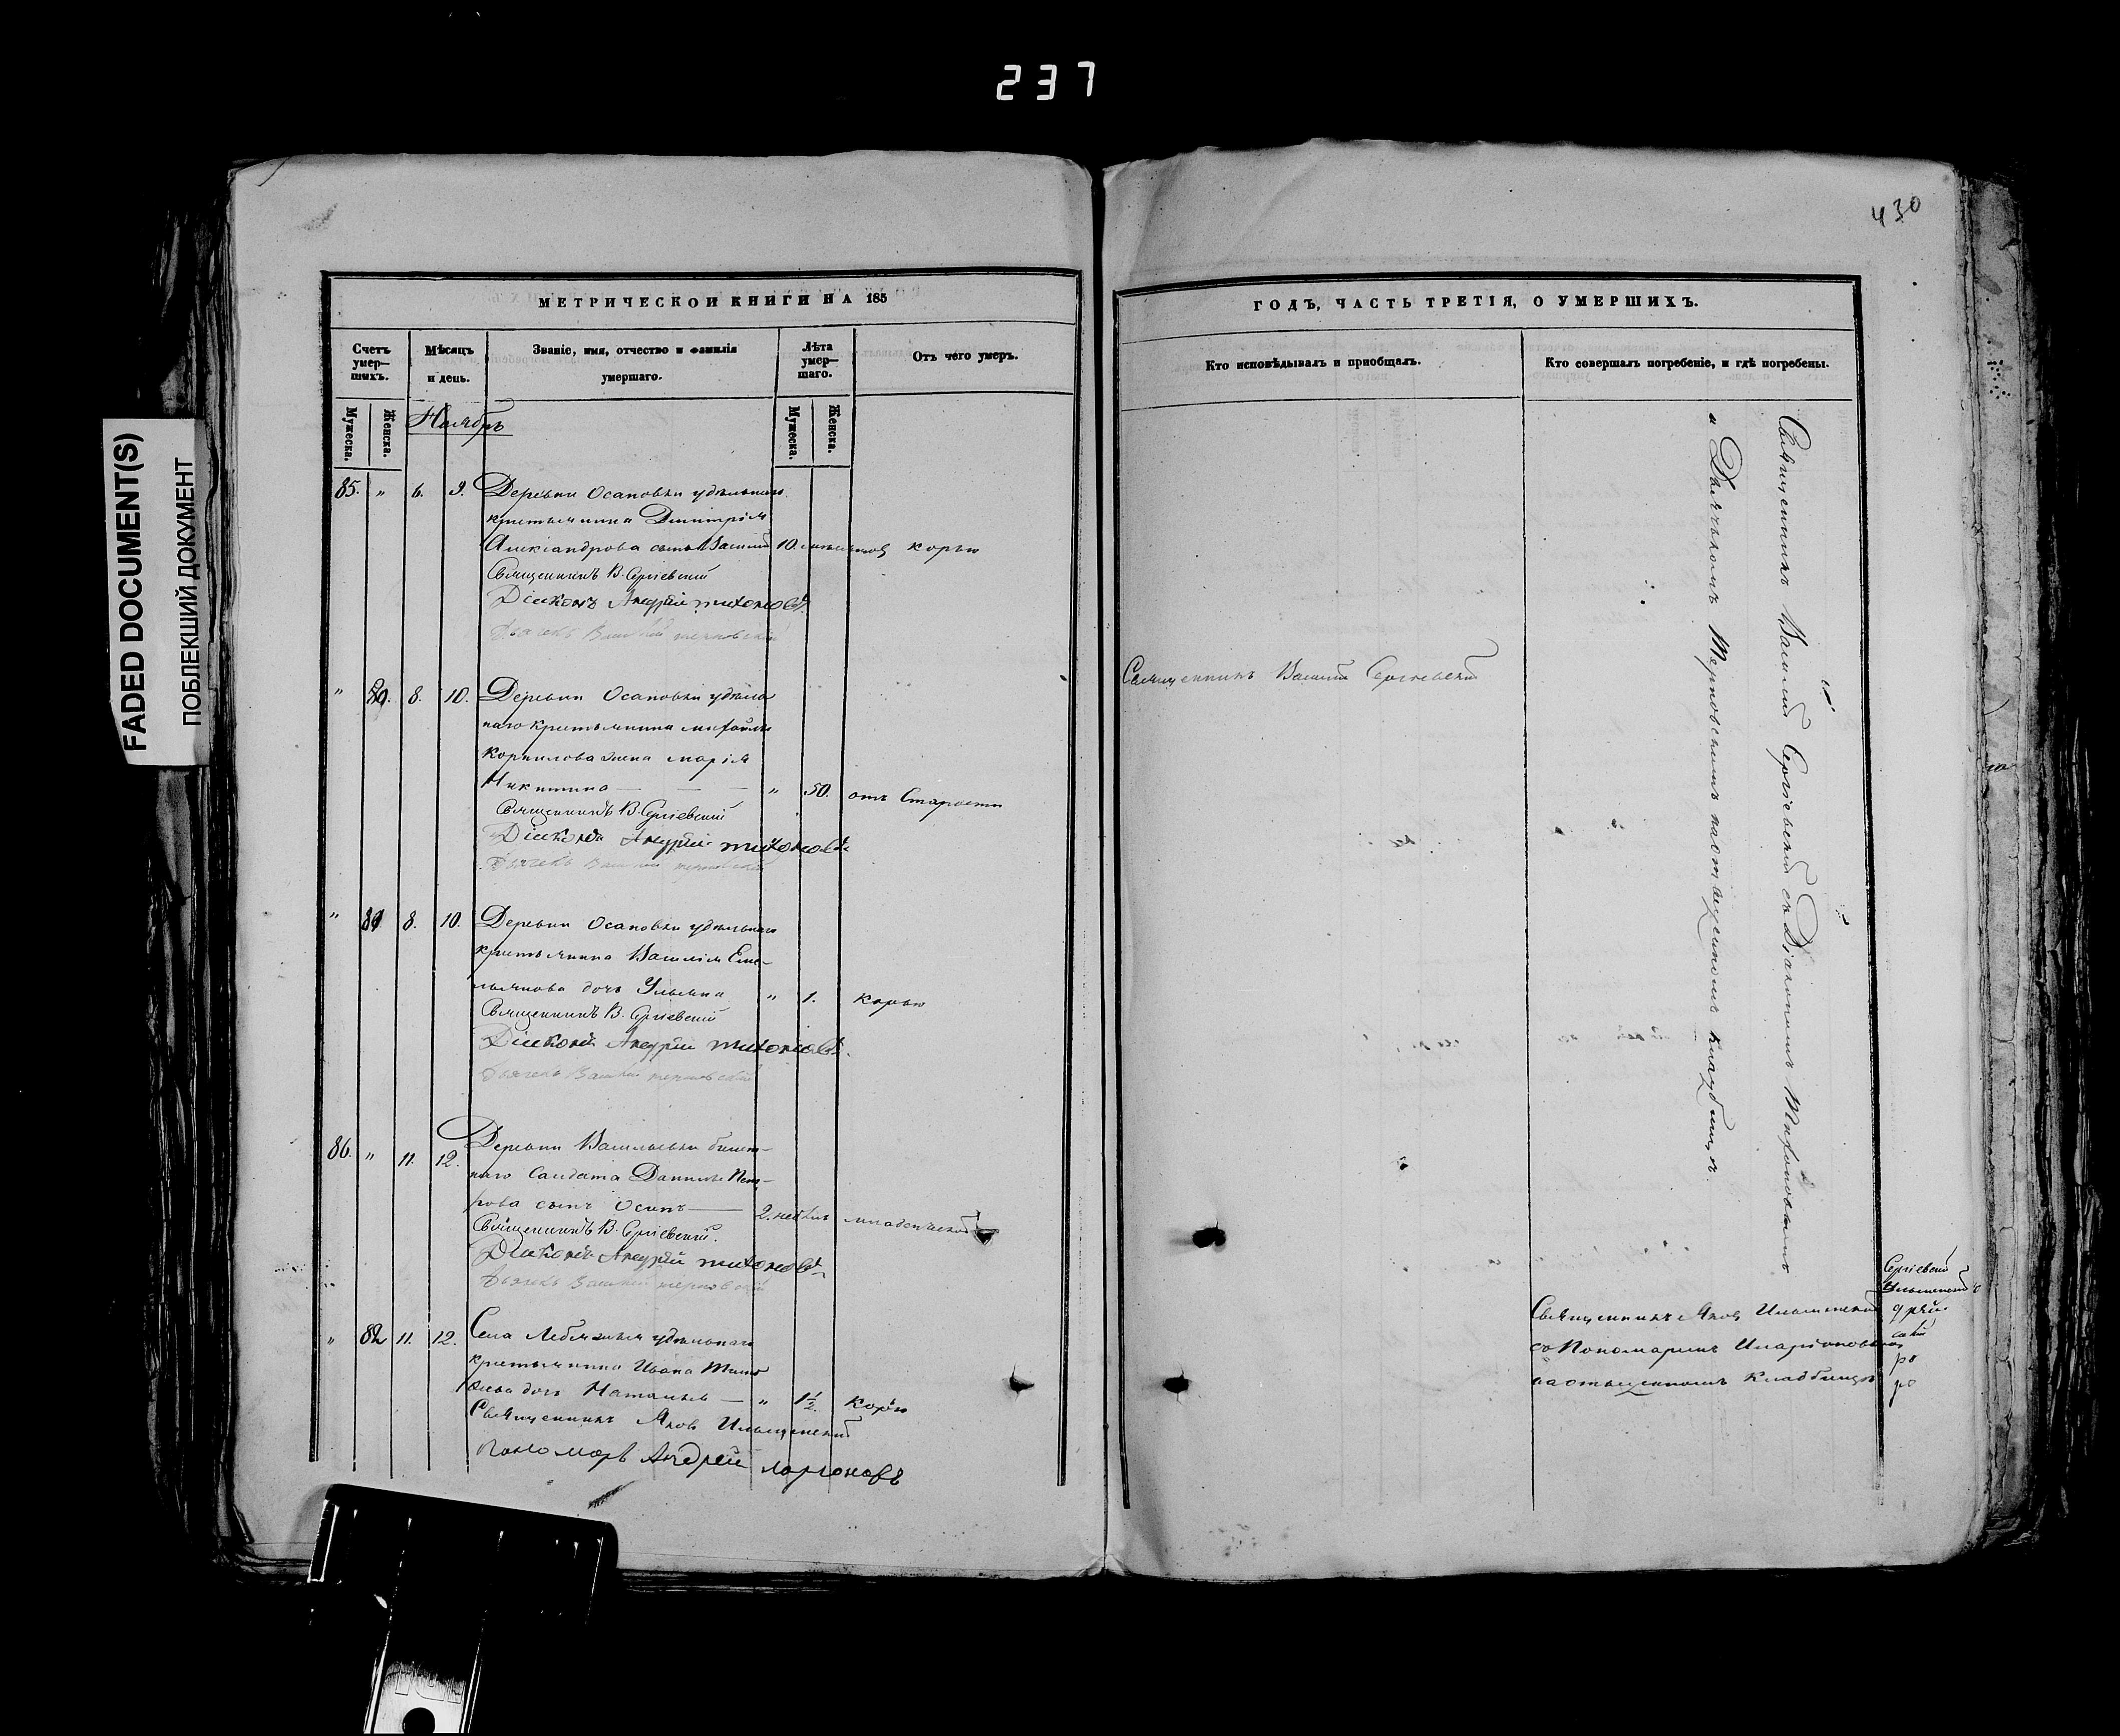 237
430
FADED DOCUMENT(S)
ПОБЛЕКШИЙ ДОКУМЕНТ
МЕТРИЧЕСКОЙ КНИГИ НА 185
Счетъ умер—шихъ.
Мѣсяцъ и день.
Званіе, имя, отчество и фамилія умершаго.
Лѣта умер—шаго.
Отъ чего умеръ.
Мужеска.
Женска.
Мужеска.
Женска.
Ноябрь
85. " 6. 9. Деревни Осановки удѣльнаго
крестьянина Димитрія
Александрова сынъ Василій 10. корью
Священникъ В. Сергіевскій
Діаконъ Андрей Тихоновъ
Дьячекъ Василій Терновскій
" 8. 10. Деревни Осановки удѣль
наго крестьянина Михаила
Корнилова жена Марія
Никитина — — — " 50. отъ Старости
Священникъ В. Сергіевскій
Діаконъ Андрей Тихоновъ
Дьячекъ Василій Терновскій
" 81 8. 10. Деревни Осановки удѣльнаго
крестьянина Василія Еме-
льянова дочь Ульяна " 1. корью
Священникъ В. Сергіевскій
Діаконъ Андрей Тихоновъ
Дьячекъ Василій Терновскій
86. " 11. 12. Деревни Васильевки билет-
наго Салдата Даниила Пет-
рова сынъ Осипъ — 2. недѣль младенческой
Священникъ В. Сергіевскій.
Діаконъ Андрей Тихоновъ
Дьячекъ Василій Терновскій
" 82 11. 12. Села Лебяжья удѣльнаго
крестьянина Ивана Тимо
феева дочь Наталья — " 1 1/2. корью
Священникъ Яковъ
пономарь Андрей Ларионовъ
ГОДЪ, ЧАСТЬ ТРЕТІЯ, О УМЕРШИХЪ.
Кто исповѣдывалъ и пріобщалъ.
Кто совершалъ погребеніе, и гдѣ погребены.
Священникъ Василій Сергіевскій
Священникъ Василій Сергіевскій съ Діакономъ Тихоновымъ
и Дьячькомъ Терновскимъ на отведенномъ кладбищѣ.
Священникъ Яковъ
съ Пономаремъ Иларіоновымъ
на отведенномъ Кладбищѣ
Сергіевскій